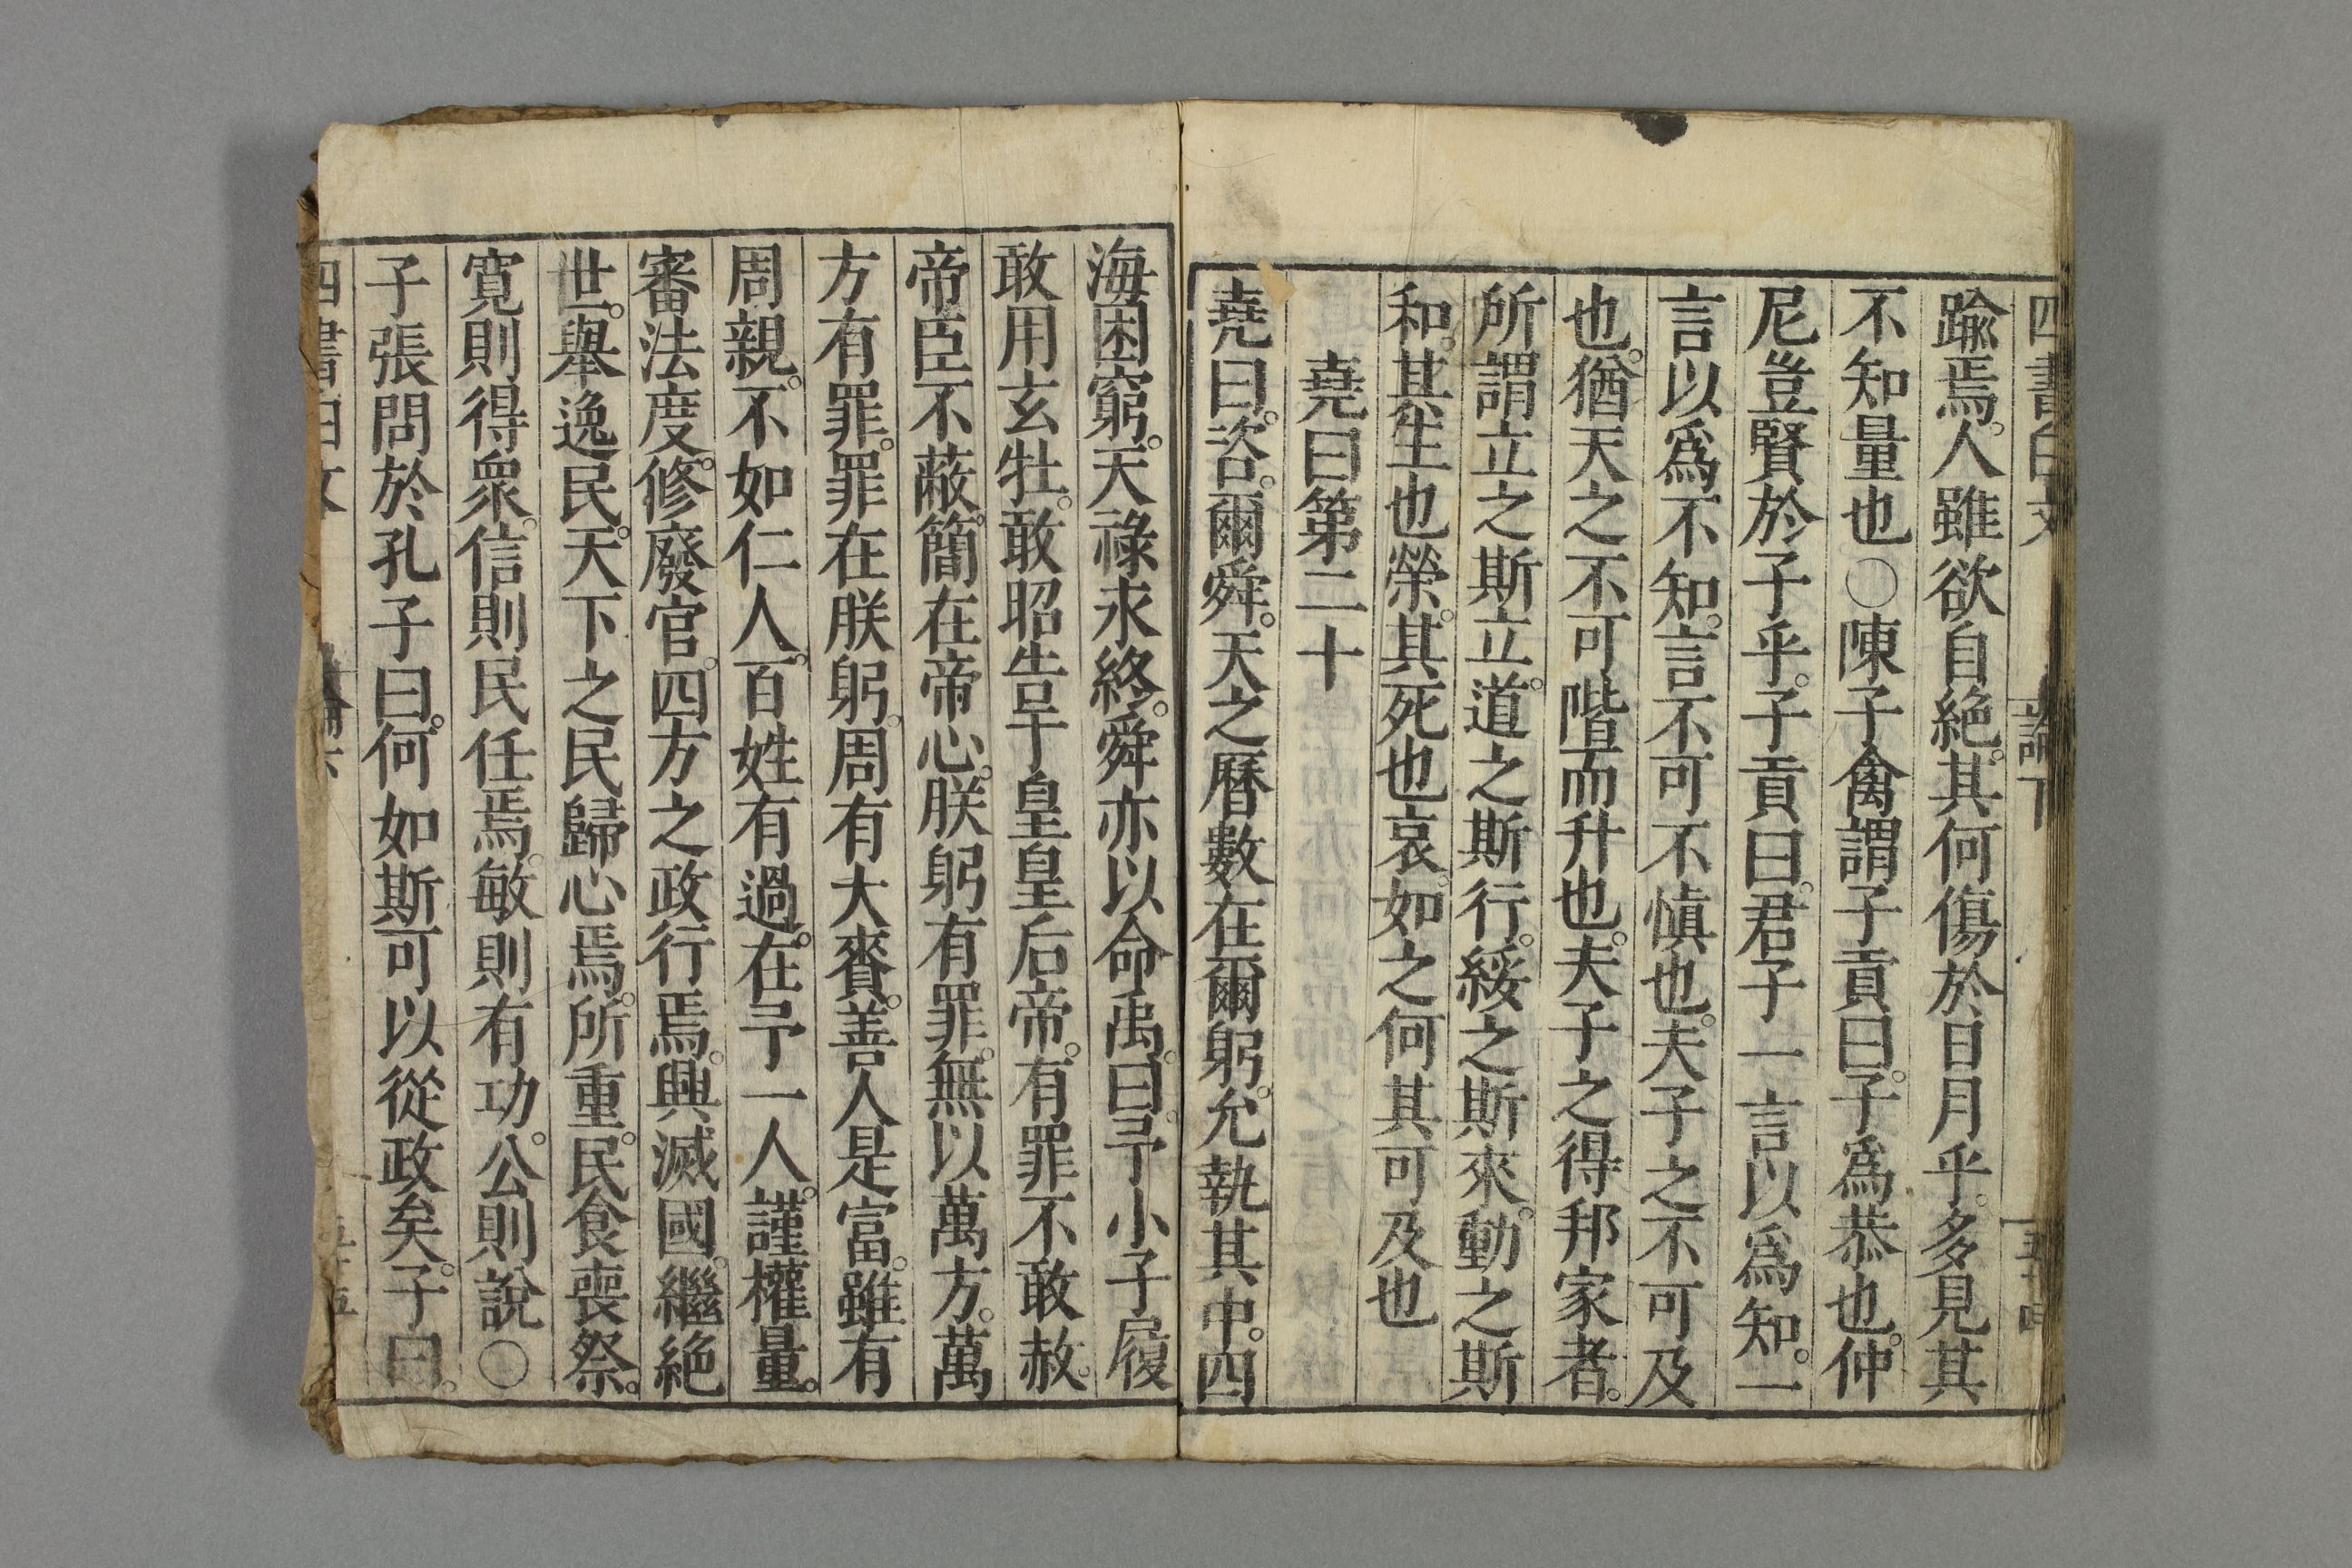 四書白文 論下 五十四
踰焉。人雖欲自絶。其何傷於日月乎。多見其
不知量也〇陳子禽謂子貢曰。子爲恭也。仲
尼豈賢於子乎。子貢曰。君子一言以爲知。一
言以爲不知。言不可不愼也。夫子之不可及
也。猶天之不可階而升也。夫子之得邦家者。
所謂立之斯立。道之斯行。綏之斯來。動之斯
和。其生也榮。其死也哀。如之何其可及也
堯曰第二十
堯曰。咨。爾舜。天之曆數在爾躬。允執其中。四
海困窮。天祿永終。舜亦以命禹。曰。予小子履
敢用玄牡。敢昭告于皇皇后帝。有罪不敢赦。
帝臣不蔽。簡在帝心。朕躬有罪。無以萬方。萬
方有罪。罪在朕躬。周有大賚。善人是富。雖有
周親。不如仁人。百姓有過。在予一人。謹權量。
審法度。修廢官。四方之政行焉。興滅國。繼絶
世。舉逸民。天下之民歸心焉。所重。民食喪祭。
寛則得衆。信則民任焉。敏則有功。公則説〇
子張問於孔子曰。何如斯可以從政矣。子曰。
四書白文